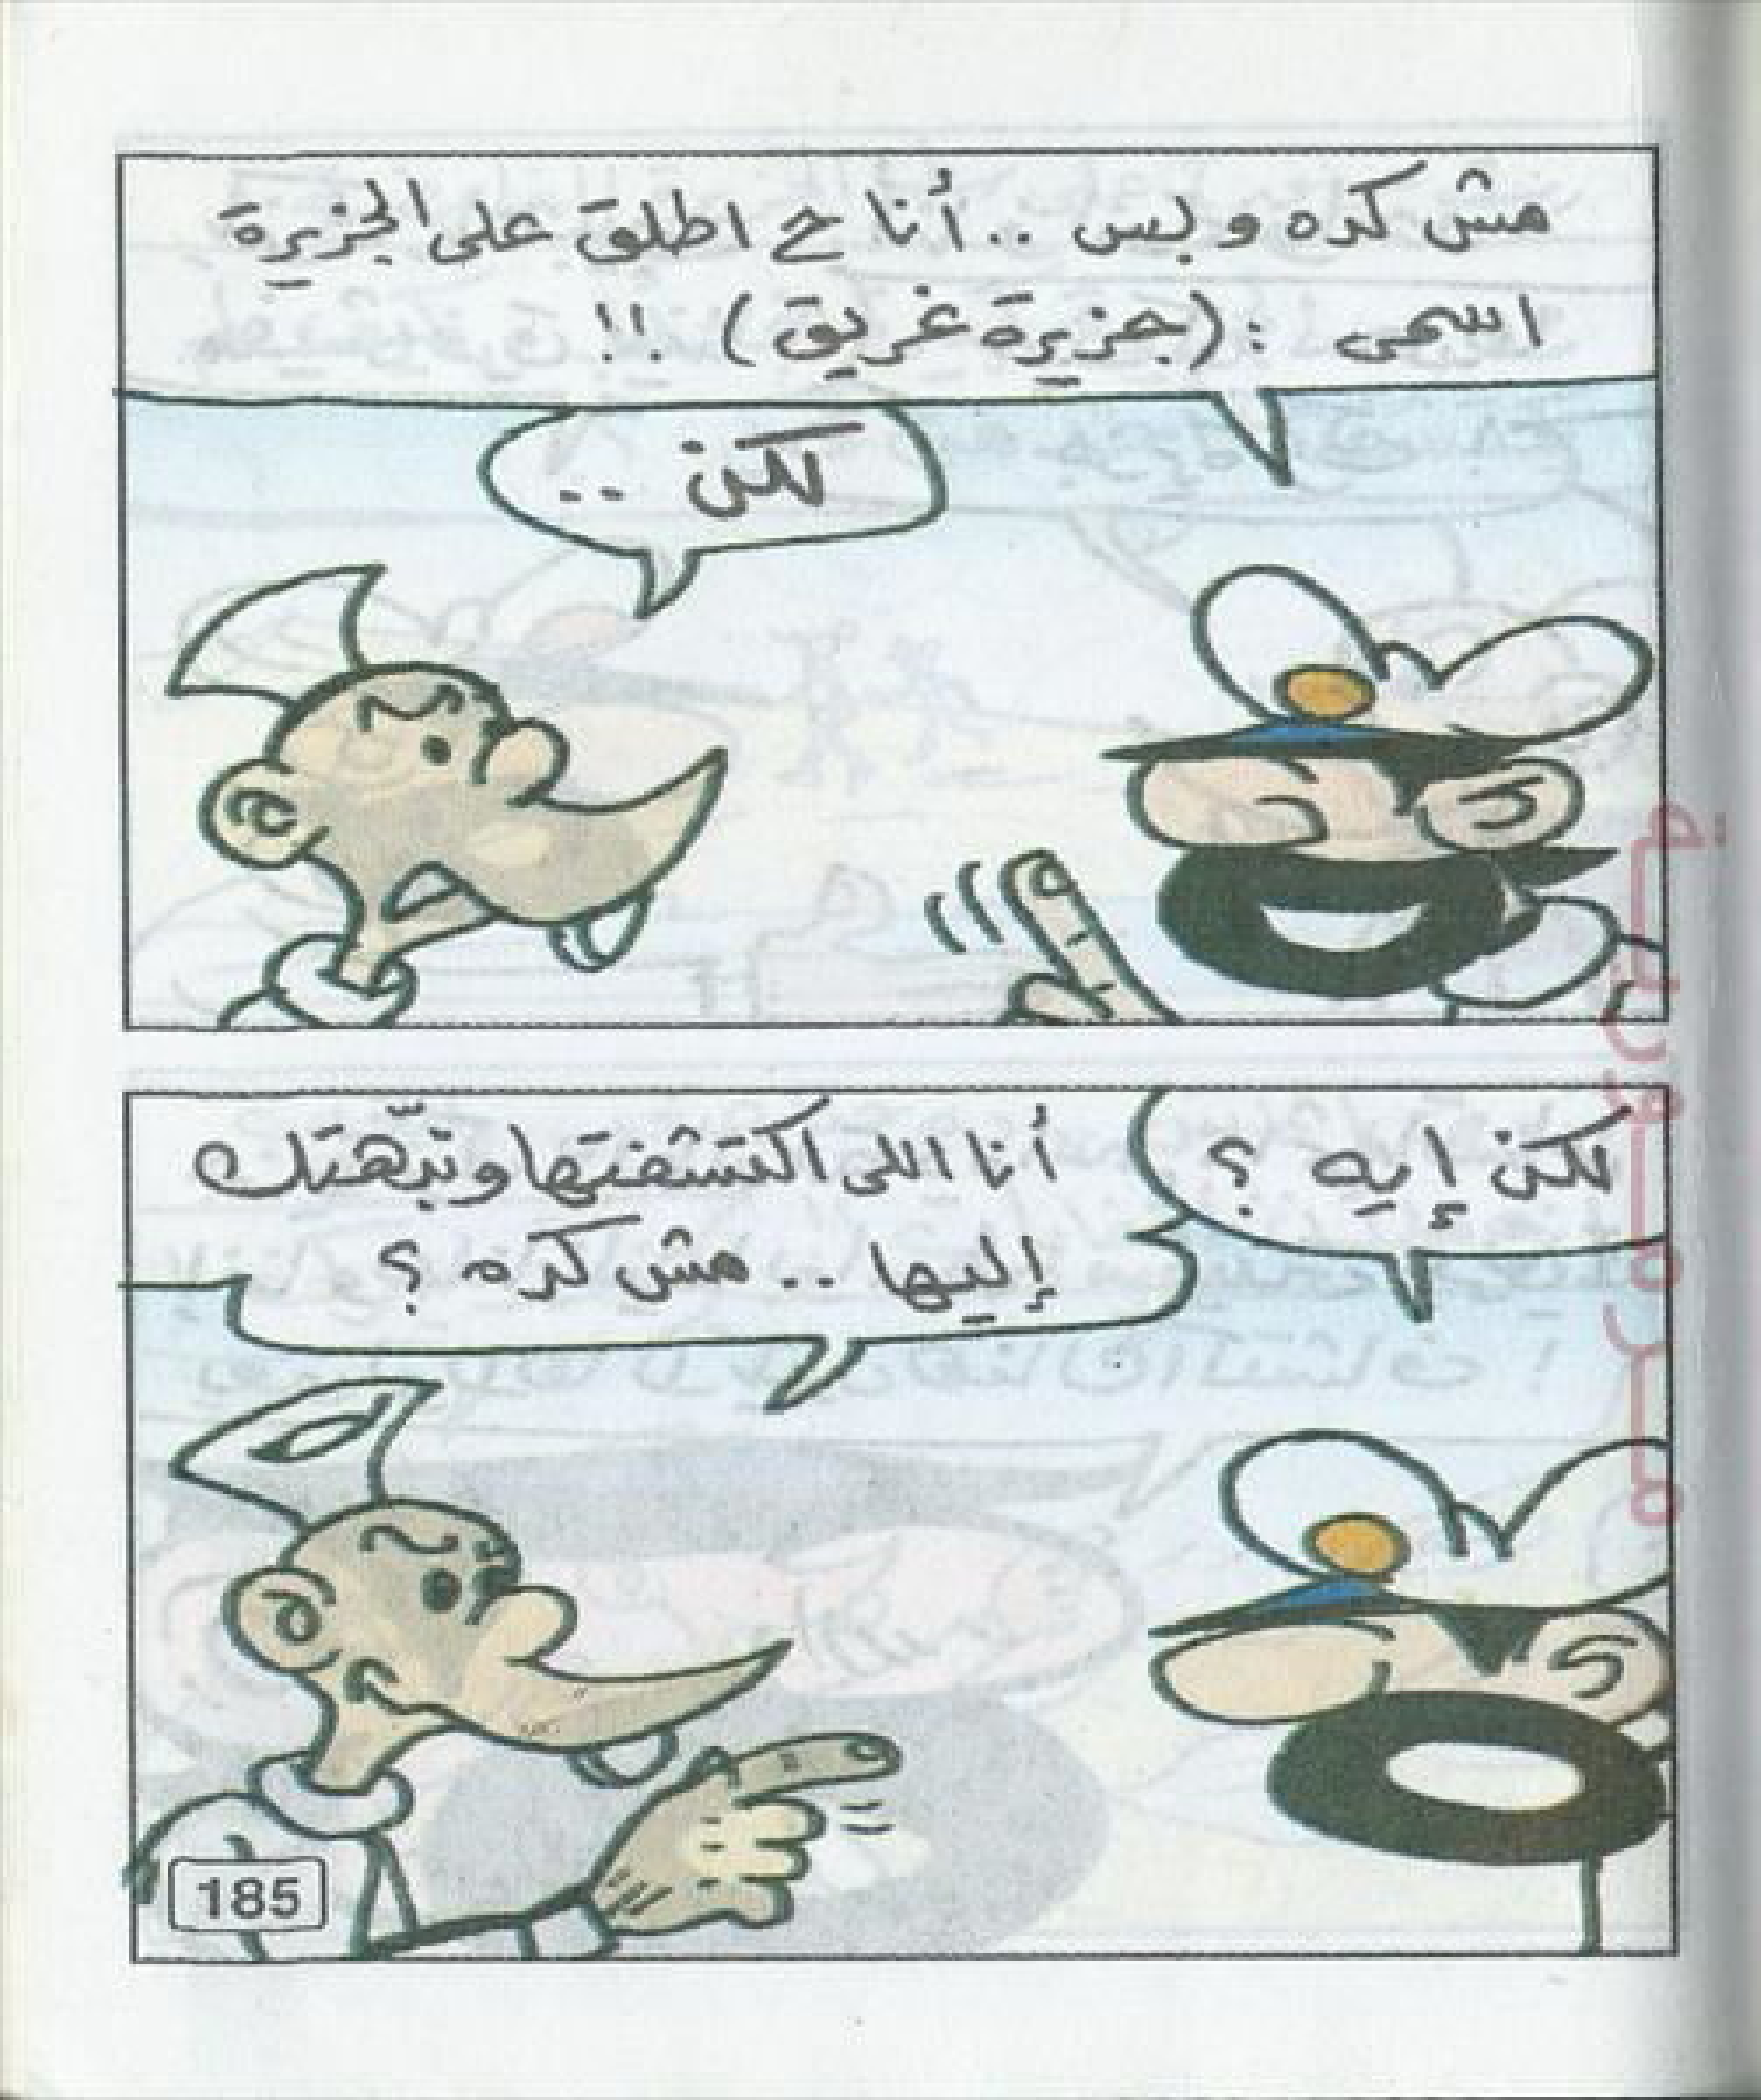 مش كده وبس .. أنا ح اطلق على الجزيرة
اسمى : (جزيرة غريق) !!
لكن ..
لكن إيه ؟
أنا اللى اكتشفتها ونبّهتك
إليها .. مش كده ؟
185